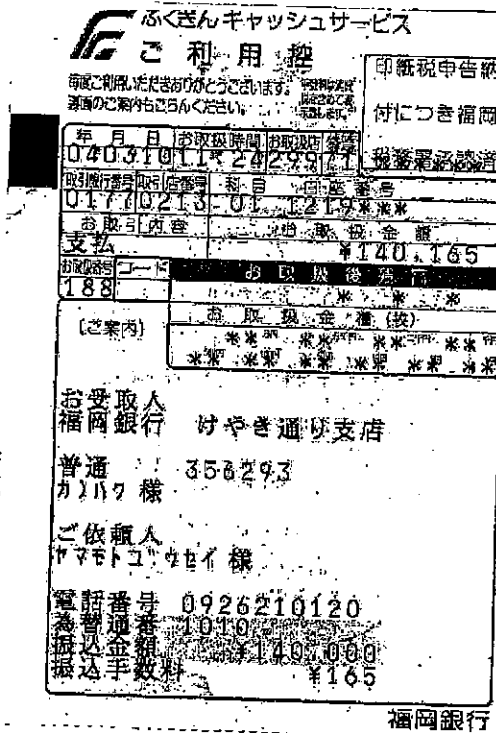 ふくぎんキャッシュサービス
ご利用控
印紙税申告納
付につき福岡
税務署承認済
毎度ご利用いただきありがとうございます。
裏面のご案内もごらんください。
年月日 お取扱時間 お取扱店
040310 11*24 299
取引銀行番号 取引店番号 科目 口座番号
0177 0213-01 1219***
お取引内容 お取扱金額
支払 ¥140,165
お取扱番号 コード お取扱後残高
188 * *
お取扱金種(枚)
〔ご案内〕
お受取人
福岡銀行 けやき通り支店
普通 356293
カ)ハク 様
ご依頼人
ヤマモトコウセイ 様
電話番号 0926210120
為替通番 1010
振込金額 ¥140,000
振込手数料 ¥165
福岡銀行